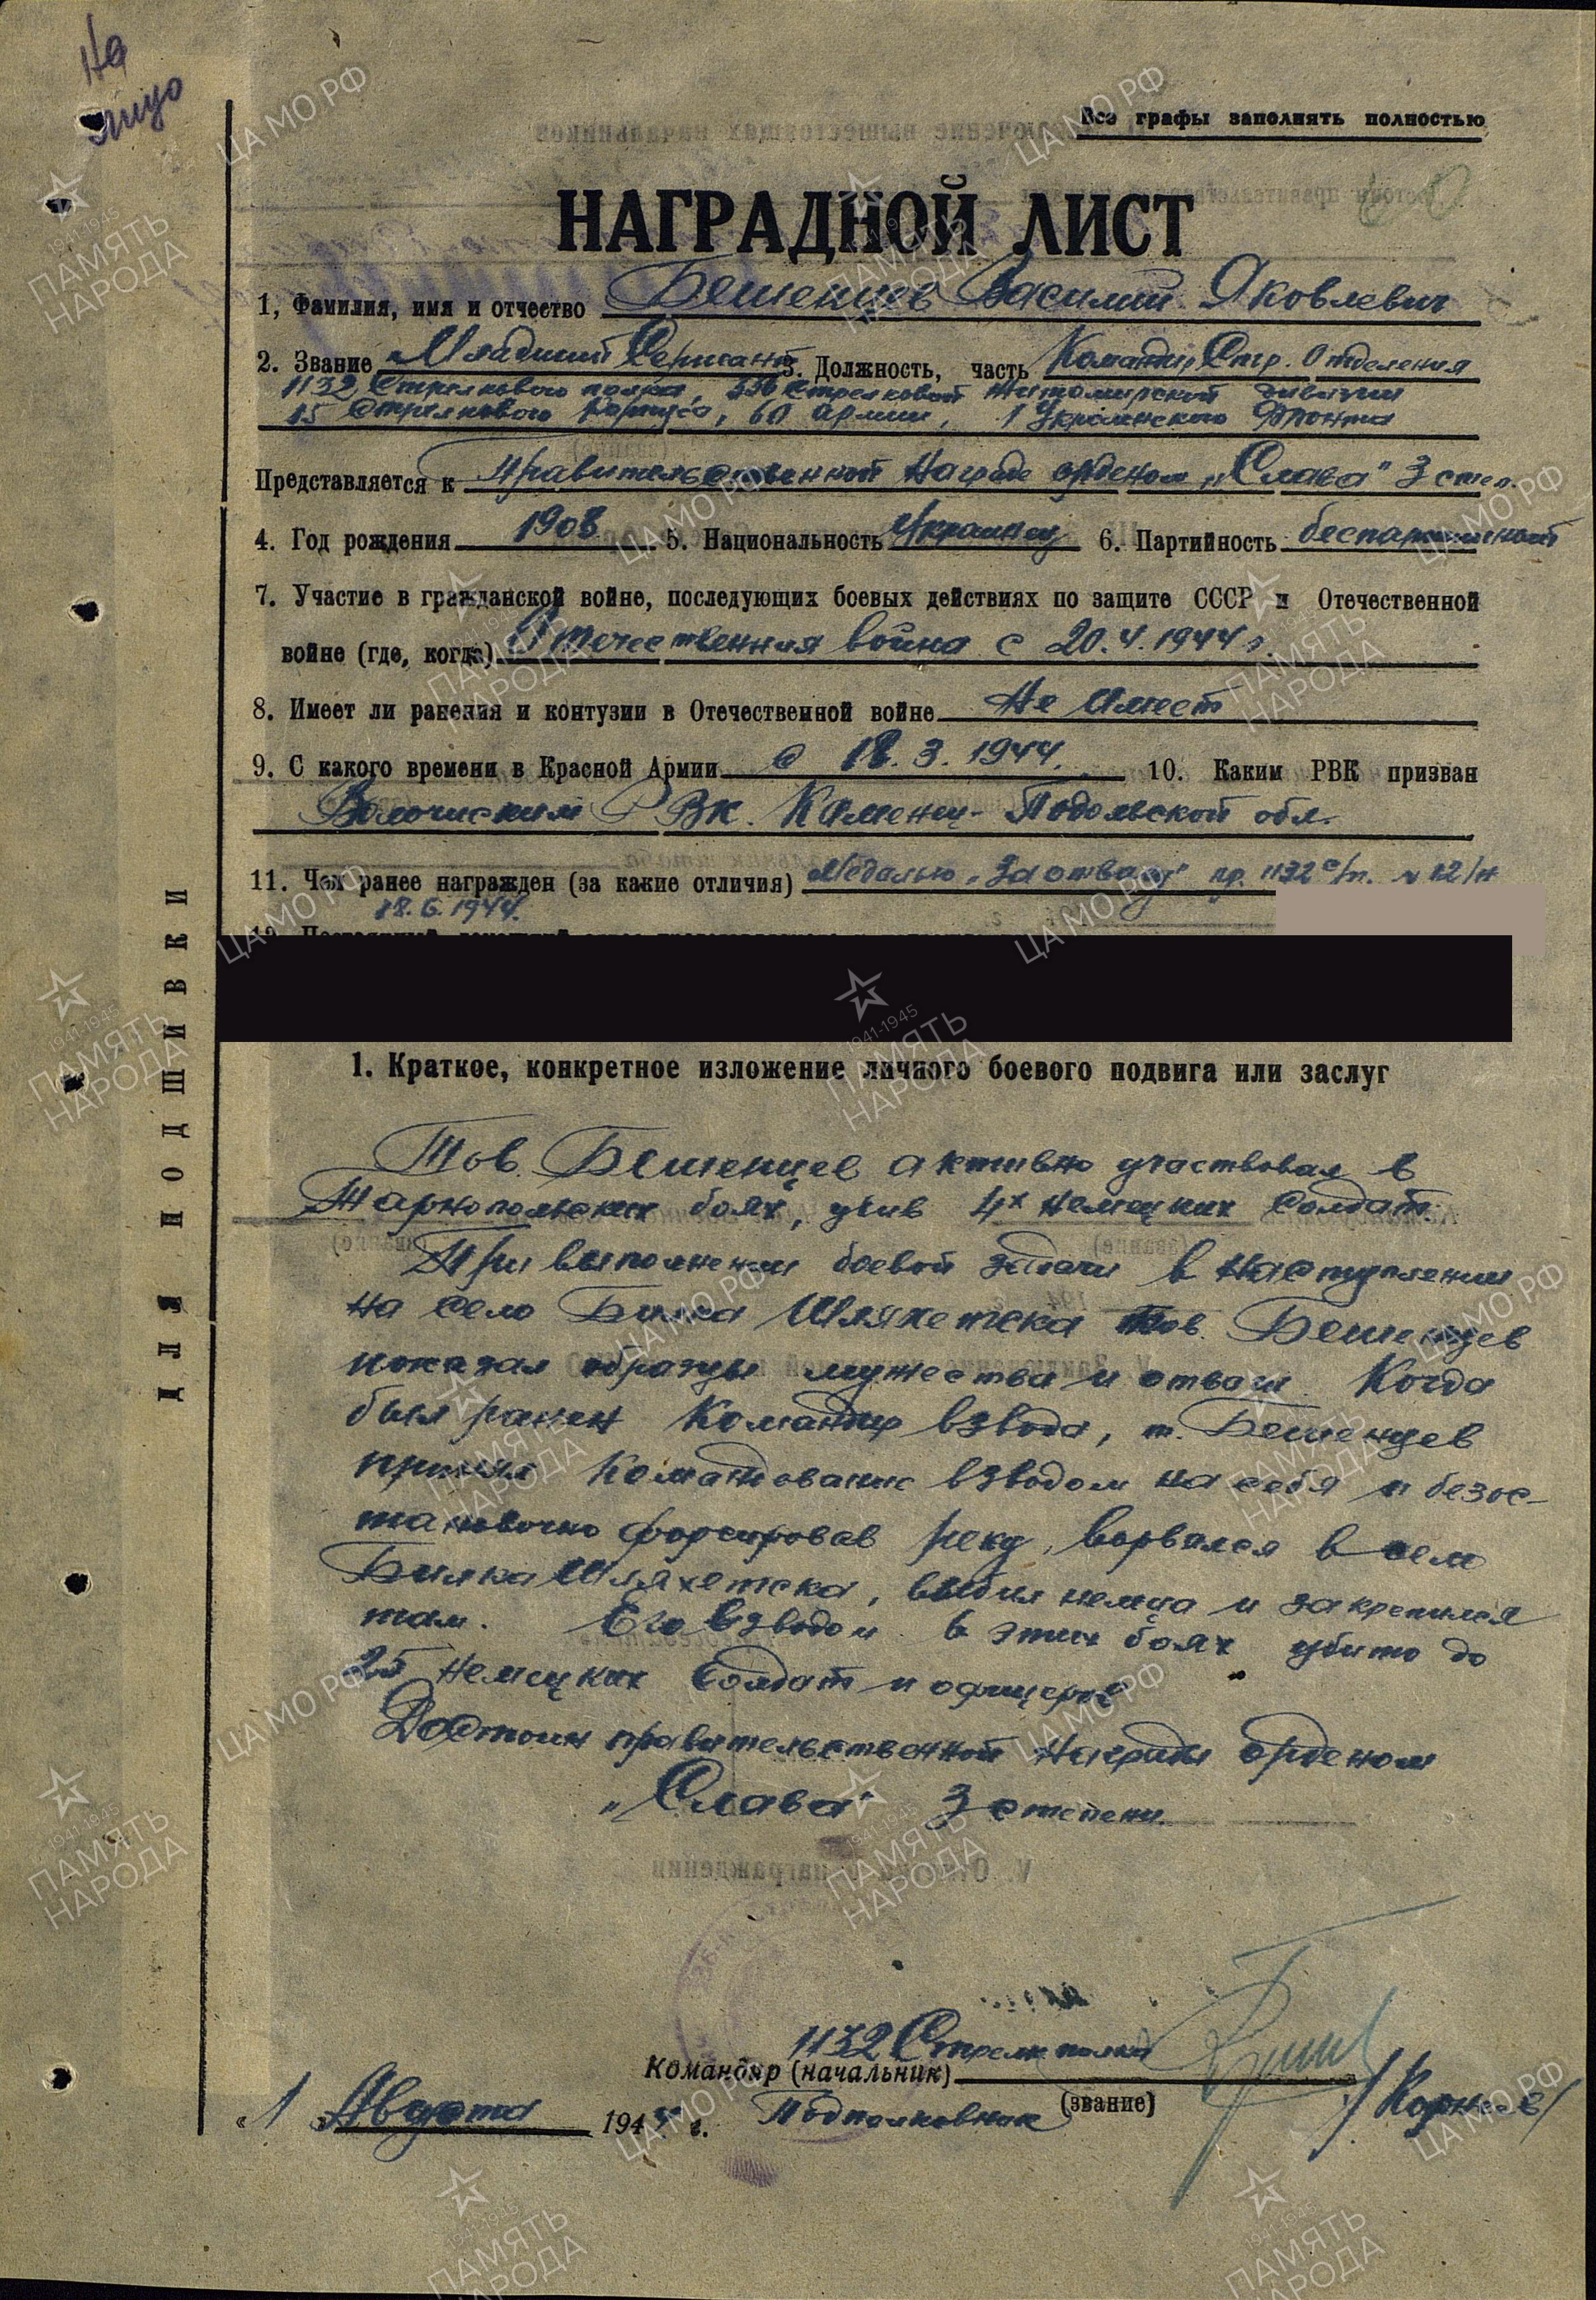 На
лицо
Все графы заполнять полностью
НАГРАДНОЙ ЛИСТ
1, Фамилия, имя и отчество Бешенцев Василий Яковлевич
2. Звание Младший Сержант 3. Должность, часть Командир Стр. Отделения
1132 Стрелкового полка, 336 Стрелковой Житомирской дивизии
15 Стрелкового Корпуса, 60 Армии, 1 Украинского Фронта
Представляется к правительственной награде орденом „Слава" 3 степ.
4. Год рождения 1908 5. Национальность Украинец 6. Партийность беспартийный
7. Участие в гражданской войне, последующих боевых действиях по защите СССР и Отечественной
войне (где, когда) Отечественная война с 20.4.1944 г.
8. Имеет ли ранения и контузии в Отечественной войне Не имеет
9. С какого времени в Красной Армии с 18.3.1944. 10. Каким РВК призван
Волочиским РВК. Каменец-Подольской обл.
11. Чем ранее награжден (за какие отличия) Медалью „За отвагу" пр. 1132 с/п. № 12/н
18.6.1944.
ДЛЯ ПОДШИВКИ
1. Краткое, конкретное изложение личного боевого подвига или заслуг
Тов. Бешенцев активно участвовал в
Тарнопольских боях, убив 4х немецких солдат.
При выполнении боевой задачи в наступлении
на село Билка Шляхетска тов. Бешенцев
показал образцы мужества и отваги. Когда
был ранен Командир взвода, т. Бешенцев
принял командование взводом на себя и безос-
тановочно форсировав реку, ворвался в село
Билка Шляхетска, выбил немца и закрепился
там. Его взводом в этих боях убито до
25 немецких солдат и офицеров
Достоин правительственной награды орденом
„Слава" 3 степени.
1132 Стрелк полка
Командир (начальник)
(звание)
Подполковник /Корнеев/
« 1 » Августа 1944 г.
ЦА МО РФ
1941-1945
ПАМЯТЬ
НАРОДА